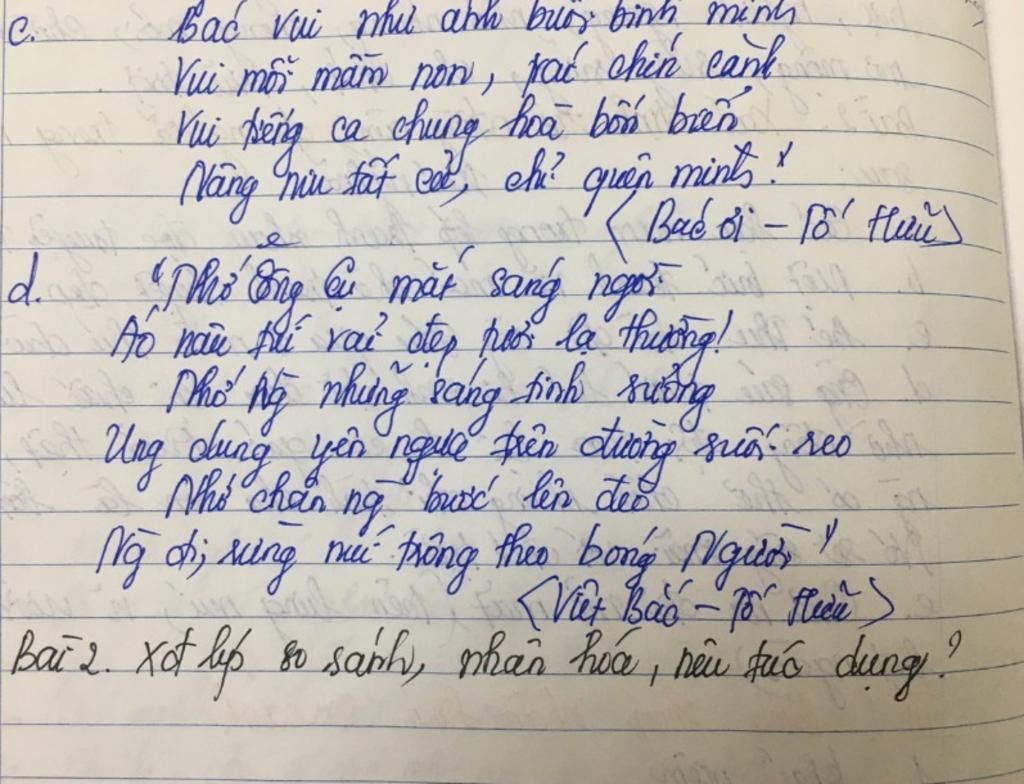 c. Bác vui như ánh buổi bình minh
Vui mỗi mầm non, trái chín cành
Vui tiếng ca chung hoà bốn biển
Nâng niu tất cả, chỉ quên mình."
<Bác ơi - Tố Hữu>
d. "Nhớ Ông Cụ mắt sáng ngời
Áo nâu túi vải đẹp tươi lạ thường!
Nhớ Ng những sáng tinh sương
Ung dung yên ngựa trên đường suối reo
Nhớ chân ng bước lên đèo
Ng đi, rừng núi trông theo bóng Người"
<Việt Bắc - Tố Hữu>
Bài 2. Xđ lớp so sánh, nhân hoá, nêu tác dụng?